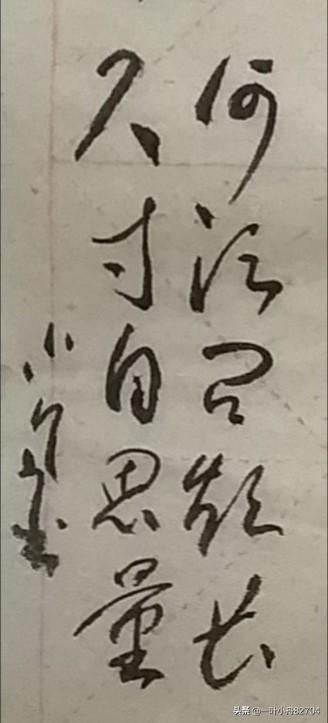 何须问短长
尺寸自思量
小舟书
头条 @一叶小舟82704